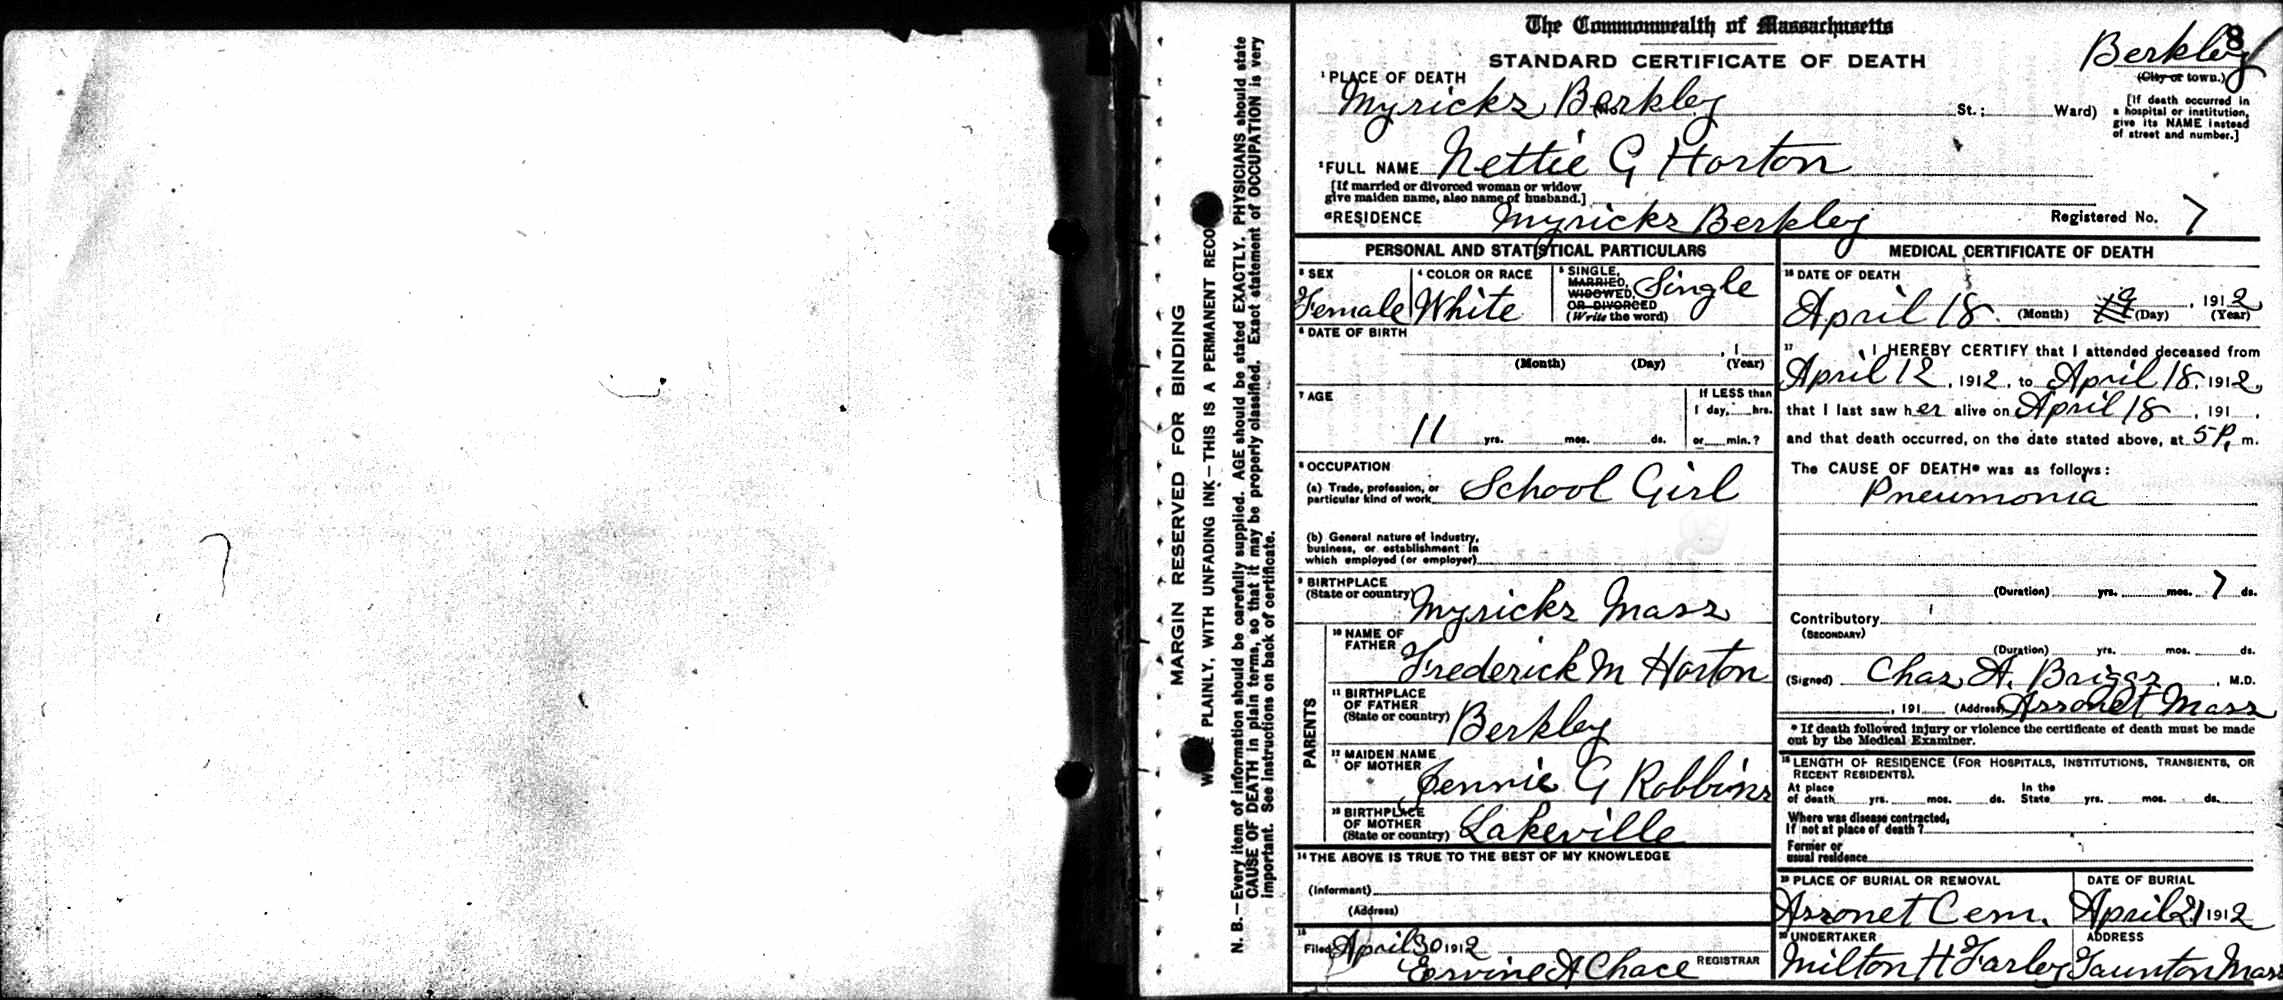 MARGIN RESERVED FOR BINDING
PLAINLY, WITH UNFADING INK—THIS IS A PERMANENT RECO
N. B.—Every item of information should be carefully supplied. AGE should be stated EXACTLY. PHYSICIANS should state
CAUSE OF DEATH in plain terms, so that it may be properly classified. Exact statement of OCCUPATION is very
important. See instructions on back of certificate.
The Commonwealth of Massachusetts
STANDARD CERTIFICATE OF DEATH
8
Berkley
(City or town.)
1 PLACE OF DEATH
Myricks Berkley St.; Ward)
[If death occurred in
a hospital or institution,
give its NAME instead
of street and number.]
2 FULL NAME Nettie G Horton
[If married or divorced woman or widow
give maiden name, also name of husband.]
RESIDENCE Myricks Berkley Registered No. 7
PERSONAL AND STATISTICAL PARTICULARS
3 SEX
Female
4 COLOR OR RACE
White
5 SINGLE,
MARRIED,
WIDOWED,
OR DIVORCED
(Write the word)
Single
6 DATE OF BIRTH
, 1
(Month) (Day) (Year)
7 AGE
11 yrs. mos. ds.
If LESS than
1 day, hrs.
or min.?
8 OCCUPATION
(a) Trade, profession, or
particular kind of work School Girl
(b) General nature of industry,
business, or establishment in
which employed (or employer)
9 BIRTHPLACE
(State or country) Myricks Mass
PARENTS
10 NAME OF
FATHER
Frederick M Horton
11 BIRTHPLACE
OF FATHER
(State or country) Berkley
12 MAIDEN NAME
OF MOTHER
Jennie G Robbins
13 BIRTHPLACE
OF MOTHER
(State or country) Lakeville
14 THE ABOVE IS TRUE TO THE BEST OF MY KNOWLEDGE
(Informant)
(Address)
15
Filed April 30 1912
Ervine A Chace REGISTRAR
MEDICAL CERTIFICATE OF DEATH
16 DATE OF DEATH
April 18 (Month) (Day) , 1912 (Year)
17 I HEREBY CERTIFY that I attended deceased from
April 12, 1912, to April 18, 1912,
that I last saw her alive on April 18, 191 ,
and that death occurred, on the date stated above, at 5 P. m.
The CAUSE OF DEATH* was as follows:
Pneumonia
(Duration) yrs. mos. 7 ds.
Contributory
(SECONDARY)
(Duration) yrs. mos. ds.
(Signed) Chas A. Briggs, M.D.
, 191 (Address) Assonet Mass
* If death followed injury or violence the certificate of death must be made
out by the Medical Examiner.
18 LENGTH OF RESIDENCE (FOR HOSPITALS, INSTITUTIONS, TRANSIENTS, OR
RECENT RESIDENTS).
At place
of death yrs. mos. ds.
In the
State yrs. mos. ds.
Where was disease contracted,
if not at place of death?
Former or
usual residence
19 PLACE OF BURIAL OR REMOVAL
Assonet Cem.
DATE OF BURIAL
April 21 1912
20 UNDERTAKER
Milton H Farley
ADDRESS
Taunton Mass